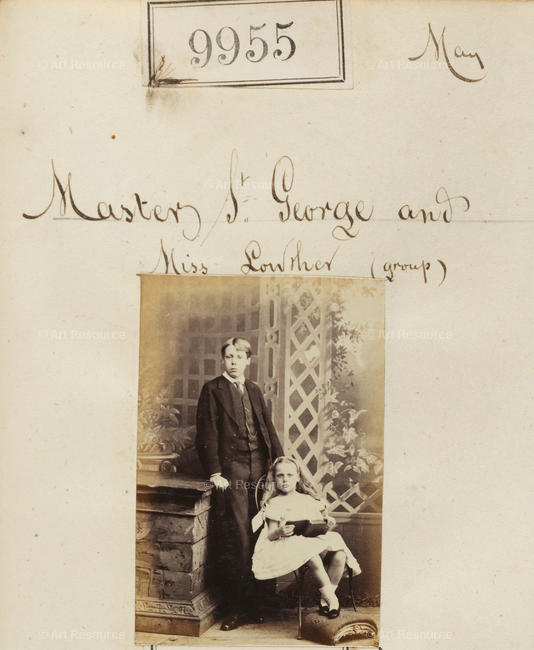 9955
May
Master St. George and
Miss Lowther (group)
© Art Resource